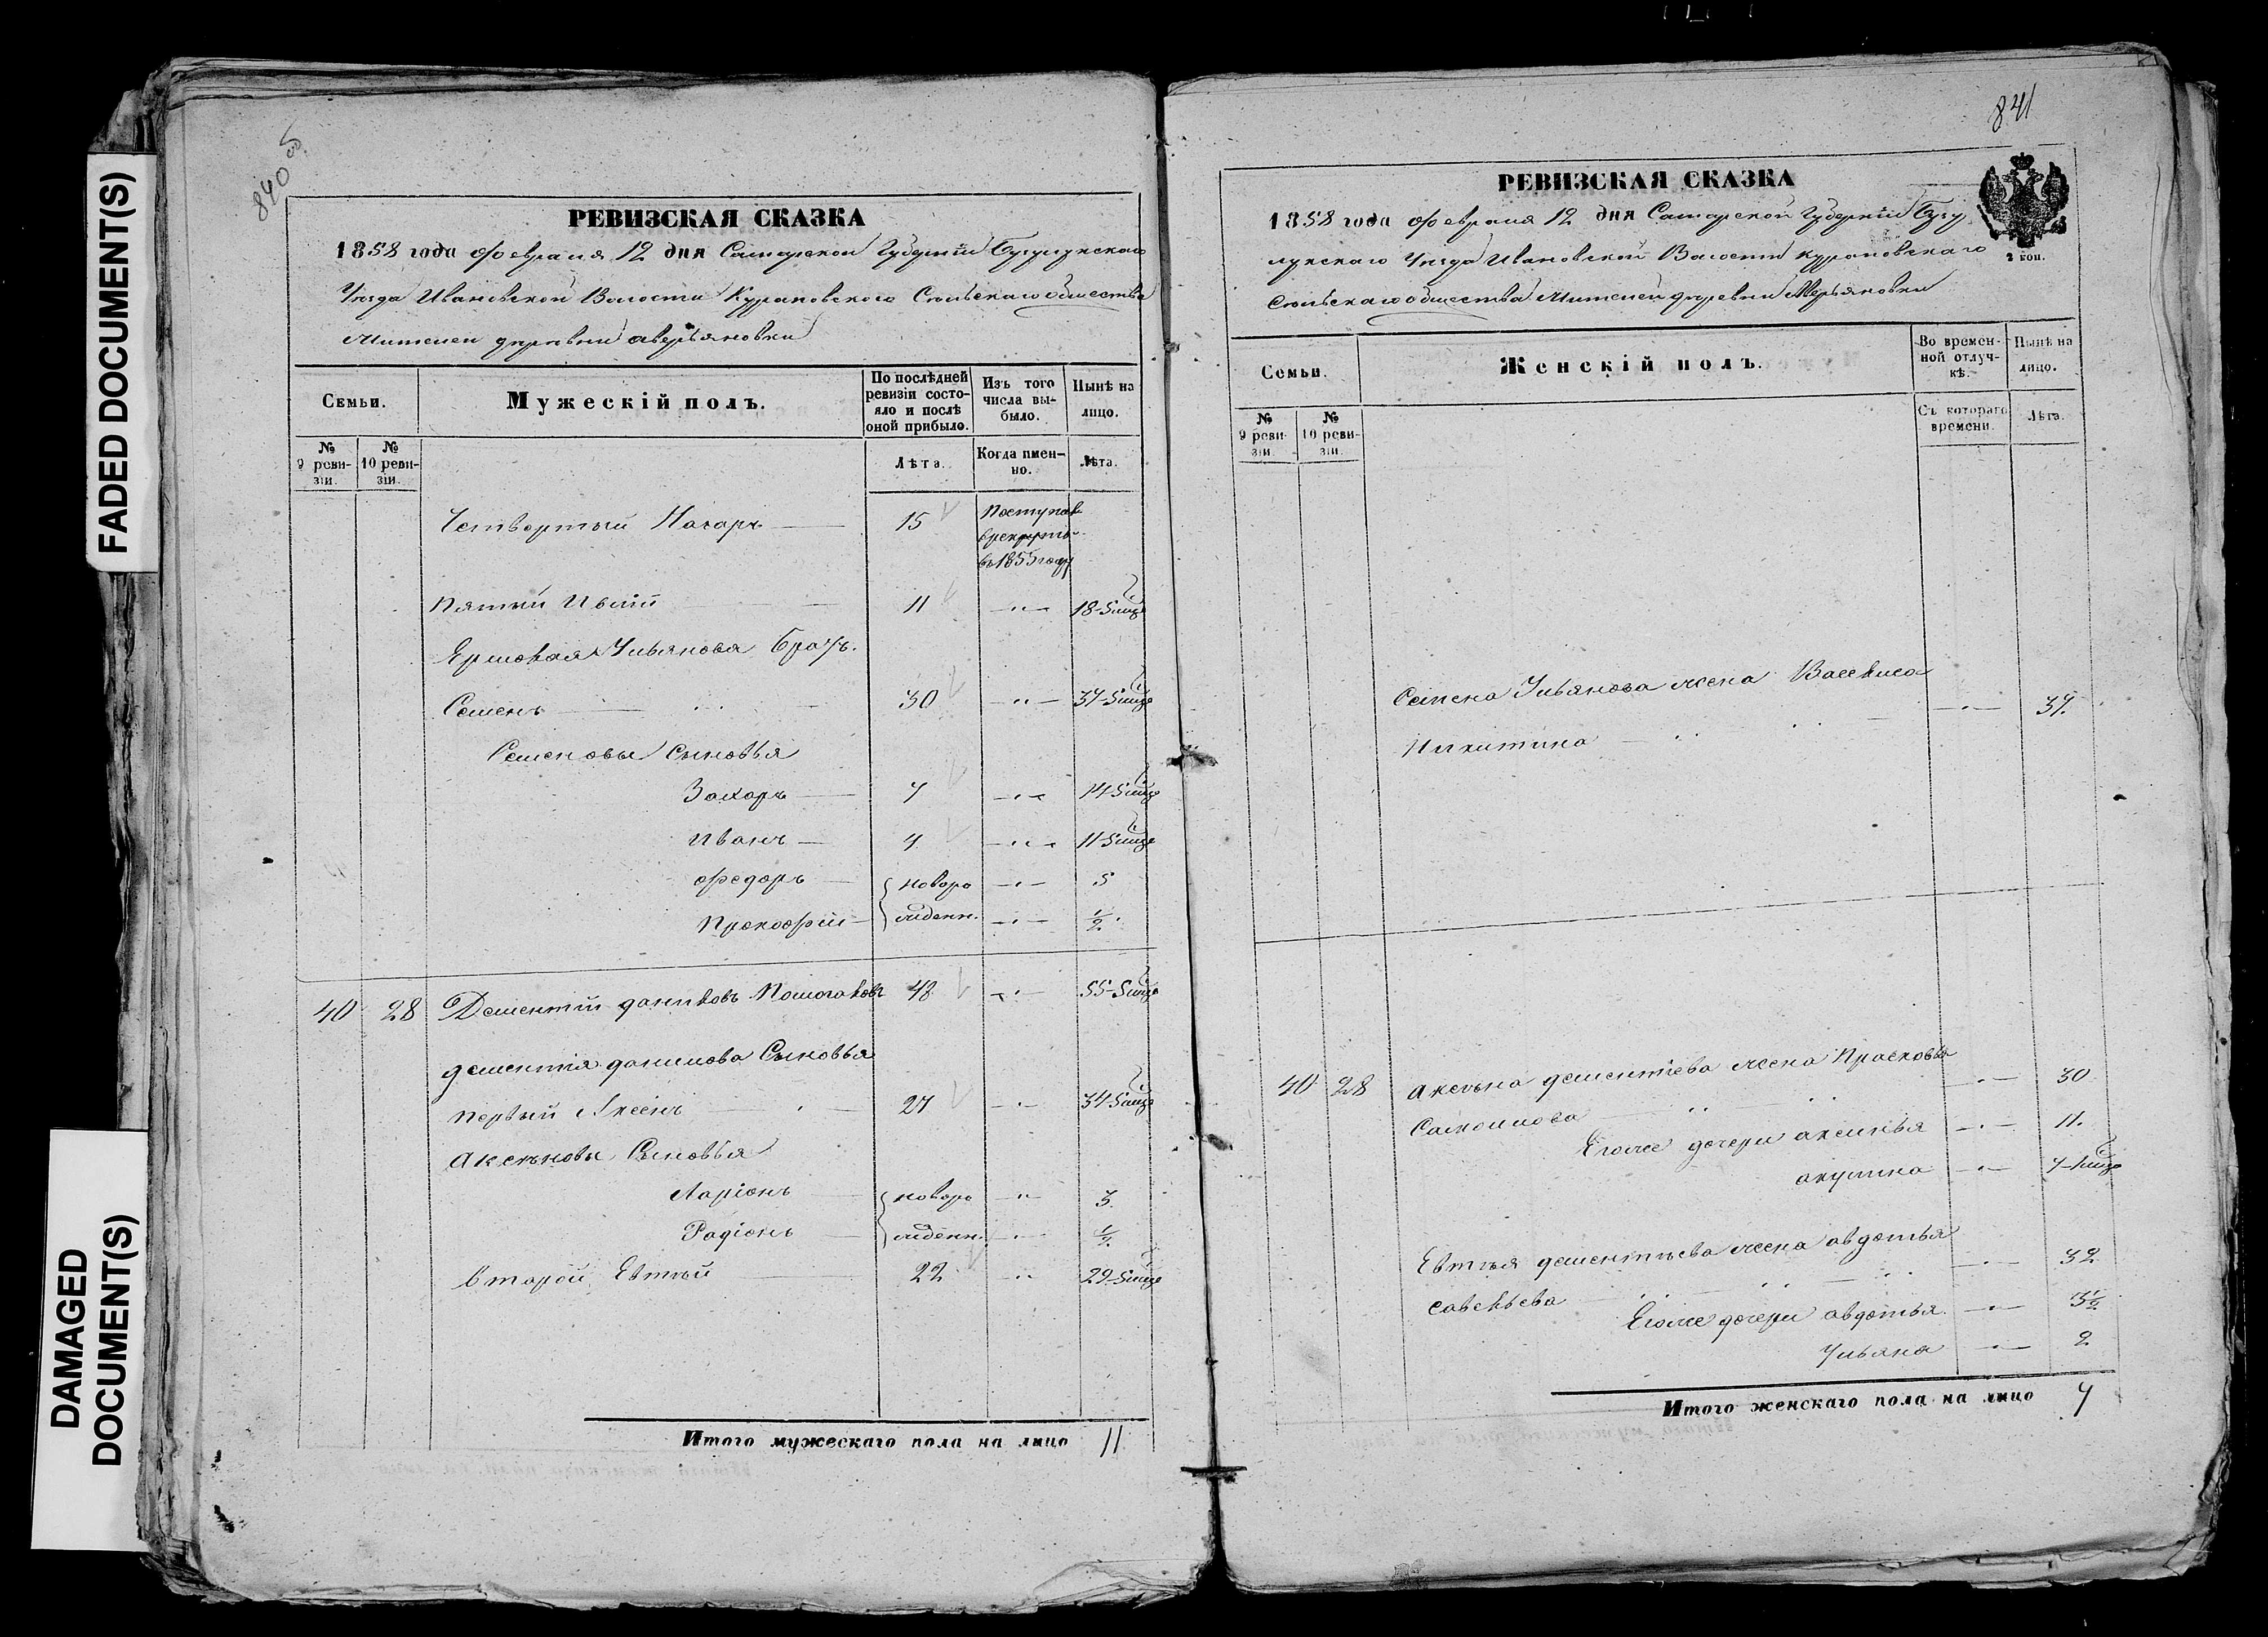 FADED DOCUMENT(S)
DAMAGED
DOCUMENT(S)
840 об.
РЕВИЗСКАЯ СКАЗКА
1858 года февраля 12 дня Самарской Губернiи Бугурускаго
Уѣзда Ивановской Волости Сѣльскаго общества
Жителей деревни аверьяновки
Семьи.
Мужескій полъ.
По послѣдней ревизіи состояло и послѣ оной прибыло.
Изъ того числа выбыло.
Нынѣ на лицо.
№ 9 ревизіи.
№ 10 ревизіи.
Лѣта.
Когда именно.
Лѣта.
Четвертый Назаръ 15 Поступилъ
врекруты
въ 1855 году
Пятый 11 18
Ульянова братъ
Семенъ 30 37
Семеновы Сыновья
Захаръ 7 14
Иванъ 4 11
Федоръ новоро 5
Прокофій жденн. 1/2
40 28 Дементій 48 55
дементія данилова Сыновья
первый 27 34
Сыновья
Ларіонъ новоро 3
Радіонъ жденн. 1/2
второй 22 29
Итого мужескаго пола на лицо 11
841
РЕВИЗСКАЯ СКАЗКА
2 коп.
1858 года февраля 12 дня Самарской Губернiи Бугу
Уѣзда Ивановской Волости
Сѣльскаго общества Жителей деревни Аверьяновки
Семьи.
Женскій полъ.
Во временной отлучкѣ.
Нынѣ на лицо.
№ 9 ревизіи.
№ 10 ревизіи.
Съ котораго времени.
Лѣта.
Семена Ульянова жена Васелиса
Никитина 37.
40 28 дементіева жена Прасковья
30
Его же дочери аксинья 11.
акулина 7
дементьева жена авдотья
савельева 32
Его же дочери авдотья 3 1/2
Ульяна 2
Итого женскаго пола на лицо 7